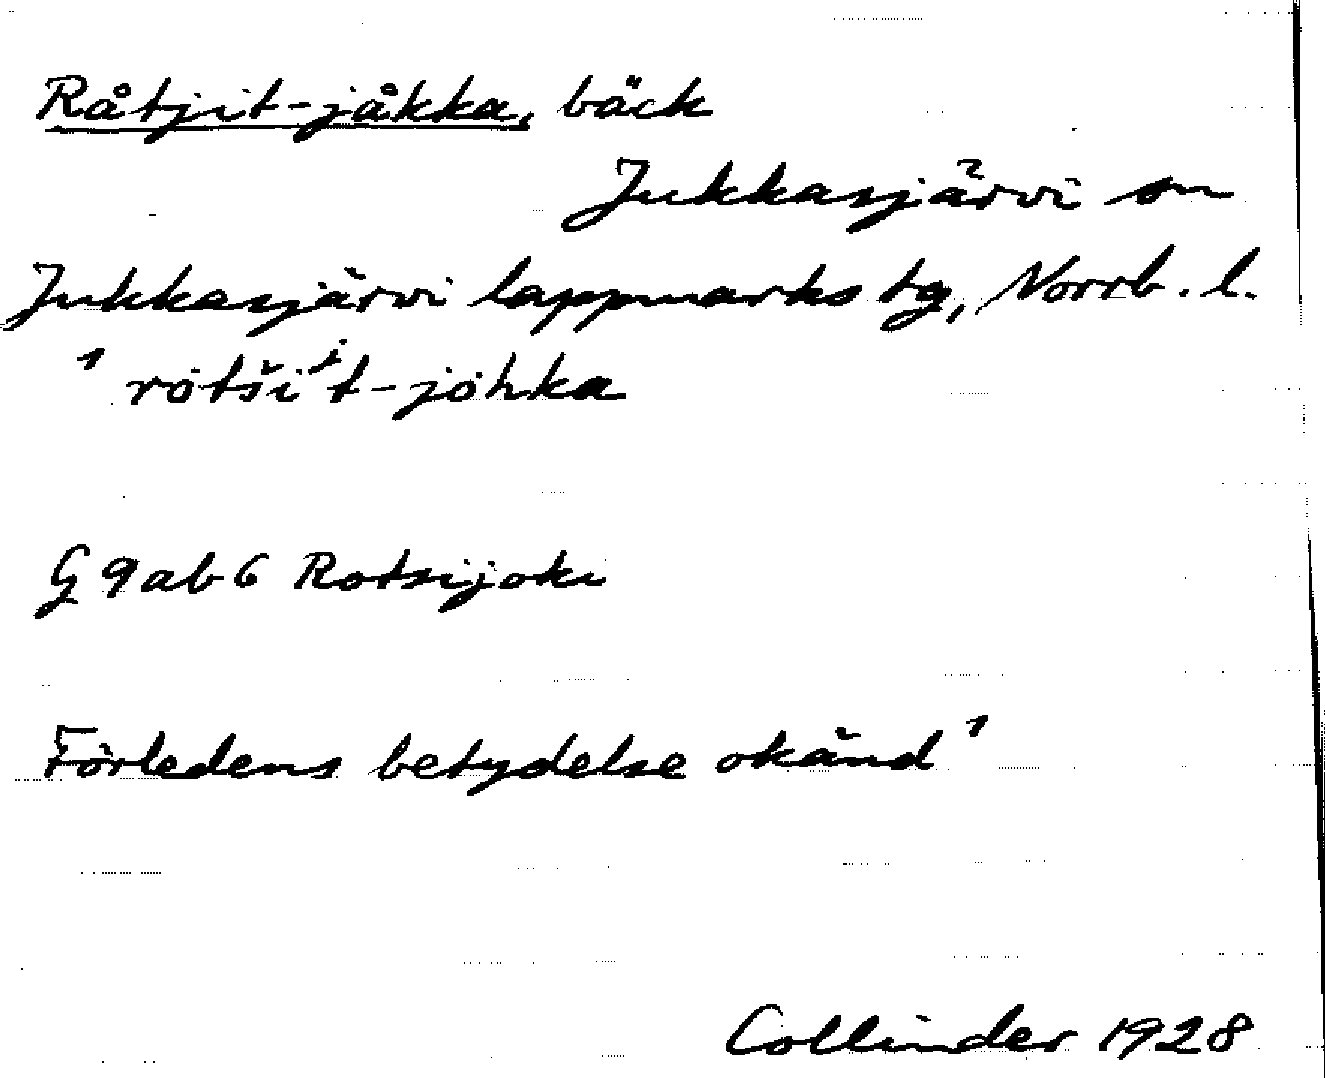 Råtjit-jåkka, bäck
Jukkasjärvi sn
Jukkasjärvi lappmarks tg, Norrb. l.
1 rötši^i t-jöhka
G 9ab6 Rotsijoki
Förledens betydelse okänd 1
Collinder 1928